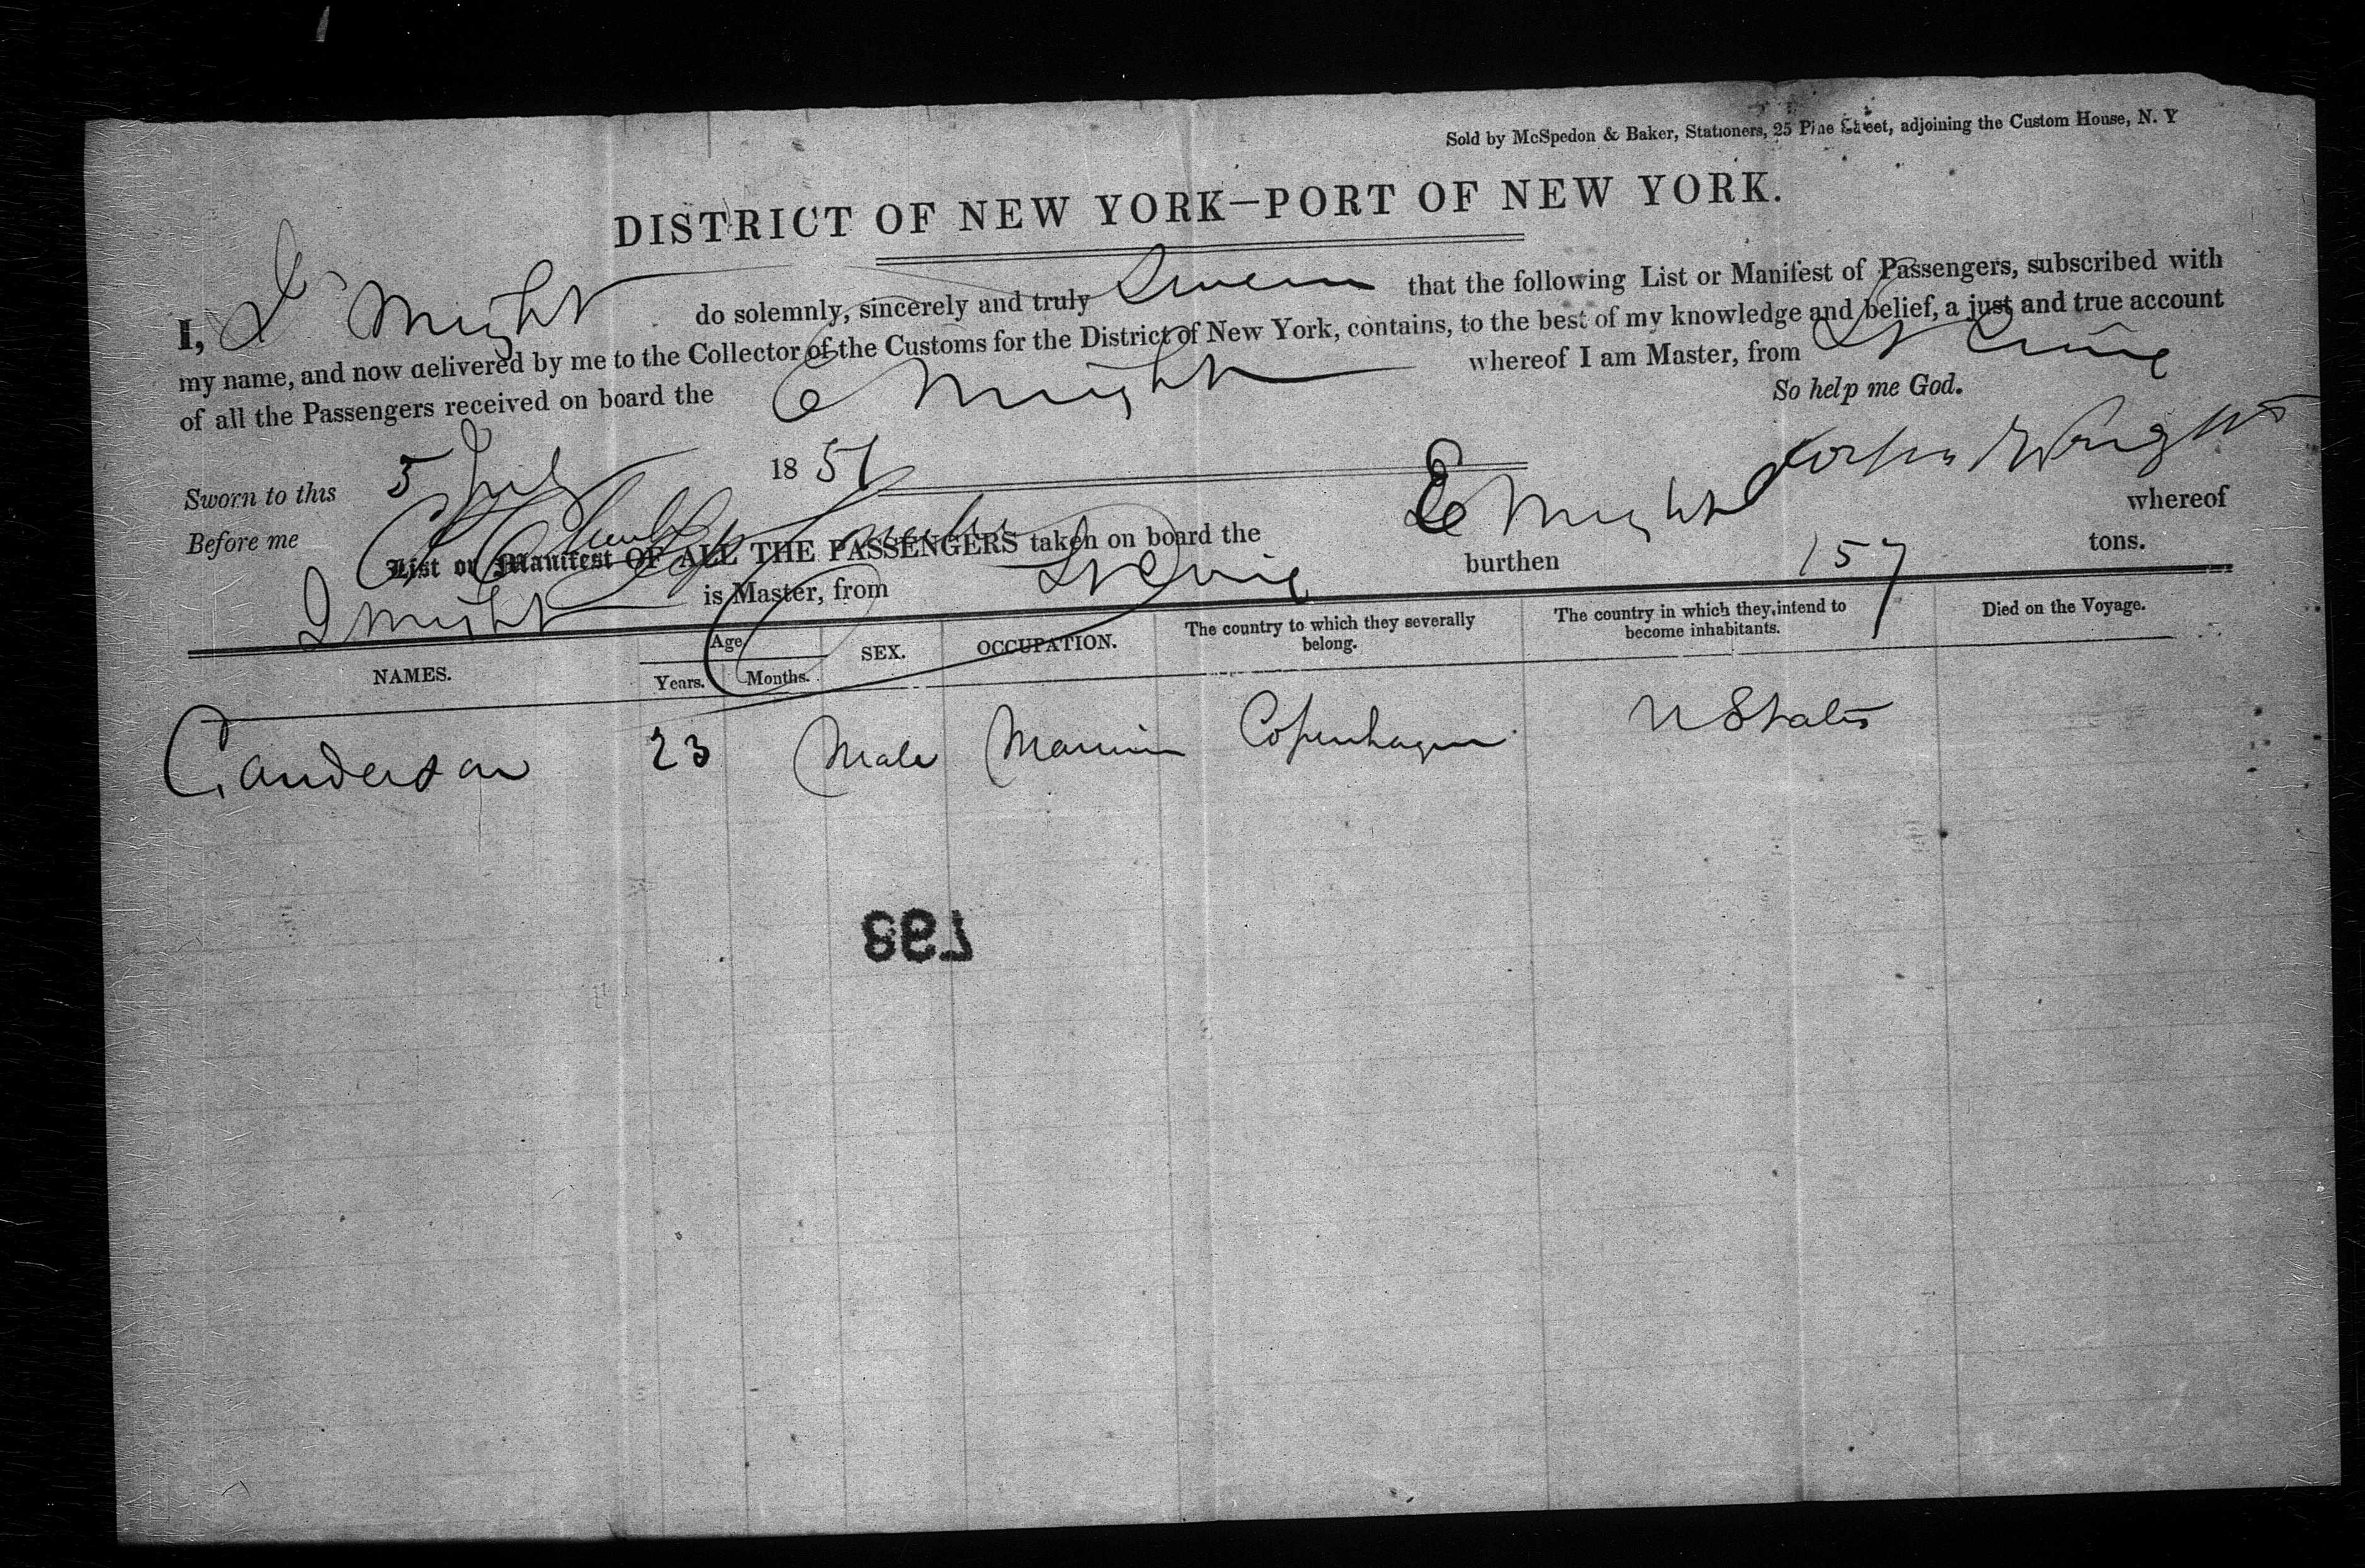 Sold by McSpedon & Baker, Stationers, 25 Pine Street, adjoining the Custom House, N. Y
DISTRICT OF NEW YORK—PORT OF NEW YORK.
I, J Wright do solemnly, sincerely and truly Swear that the following List or Manifest of Passengers, subscribed with
my name, and now delivered by me to the Collector of the Customs for the District of New York, contains, to the best of my knowledge and belief, a just and true account
of all the Passengers received on board the E Wright whereof I am Master, from St Croix
So help me God.
Sworn to this 5 July 1851
Wright
Before me
List or Manifest OF ALL THE PASSENGERS taken on board the E Wright whereof
J Wright is Master, from St Croix burthen 157 tons.
NAMES. Age Years. Months. SEX. OCCUPATION. The country to which they severally belong. The country in which they intend to become inhabitants. Died on the Voyage.
C anderson 23 Male Marine Copenhagen U States
793